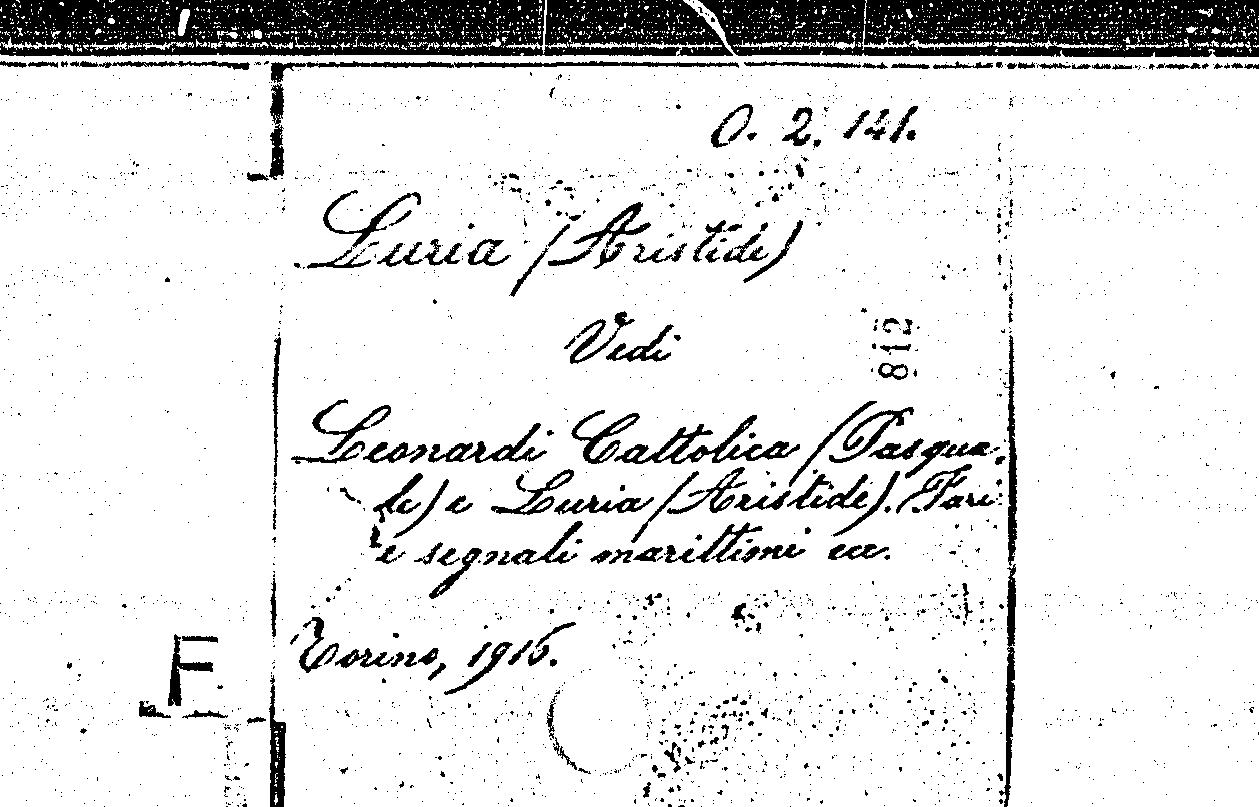 O. 2. 141.
Luria (Aristide)
Vedi
812
Leonardi Cattolica (Pasqua-
le) e Luria (Aristide). Fari
e segnali marittimi ecc.
Torino, 1916.
F